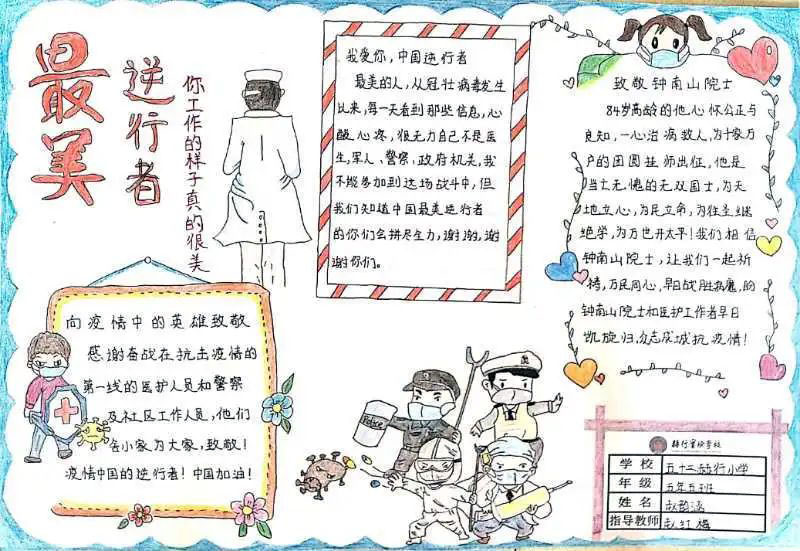 最美
逆行者
你工作的样子真的很美
我爱你,中国逆行者
最美的人,从冠壮病毒发生
以来,每一天看到那些信息,心
酸心疼,很无力自己不是医
生,军人、警察,政府机关,我
不能参加到这场战斗中,但
我们知道中国最美逆行者
的你们会拼尽全力,谢谢,谢
谢你们。
致敬钟南山院士
84岁高龄的他,心怀公正与
良知,一心治病救人,为千家万
户的团圆挂帅出征,他是
当之无愧的无双国士,为天
地立心,为民立命,为往圣继
绝学,为万世开太平!我们相信
钟南山院士,让我们一起祈
祷,万民同心,早日战胜病魔,盼
钟南山院士和医护工作者早日
凯旋归,众志成城抗疫情!
向疫情中的英雄致敬
感谢奋战在抗击疫情的
第一线的医护人员和警察
及社区工作人员,他们
舍小家为大家,致敬!
疫情中国的逆行者!中国加油!
Police
学校 五十三赫行小学
年级 五年五班
姓名
指导教师 赵红梅